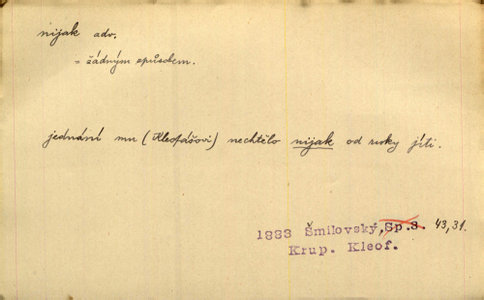 nijak adv.
= žádným způsobem.
jednání mu (Kleofášovi) nechtělo nijak od ruky jíti.
1883 Šmilovský, Sp.3. 43,31.
Krup. Kleof.